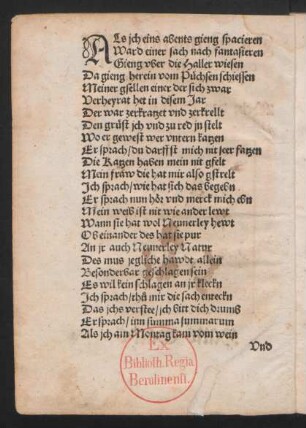 ALs jch eins abents gieng spacieren
Ward einer sach nach fantasieren
Gieng vber die Haller wiesen
Da gieng herein vom Püchsen schiessen
Meiner gsellen einer der sich zwar
Verheyrat het in disem Jar
Der war zerkratzt vnd zerkrellt
Den grüst jch vnd zu red jn stelt
Wo er gewest wer vntern katzen
Er sprach/ du darffst mich nit seer fatzen
Die Katzen haben mein nit gfelt
Mein fraw die hat mir also gstrelt
Ich sprach/ wie hat sich das begebn
Er sprach nun hör vnd merck mich ebn
Mein weib ist nit wie ander lewt
Wann sie hat wol Neunerley hewt
Ob einander des hat sie pur
An jr auch Neunerley Natur
Des mus jegliche hawdt allein
Besonderbar geschlagen sein
Es wil kein schlagen an jr kleckn
Ich sprach/ thů mir die sach entdeckn
Das jchs verstee/ jch bitt dich drumb
Er sprach/ inn summa summarum
Als jch am Montag kam vom wein
Vnd
EX
Biblioth. Regia
Berolinensi.